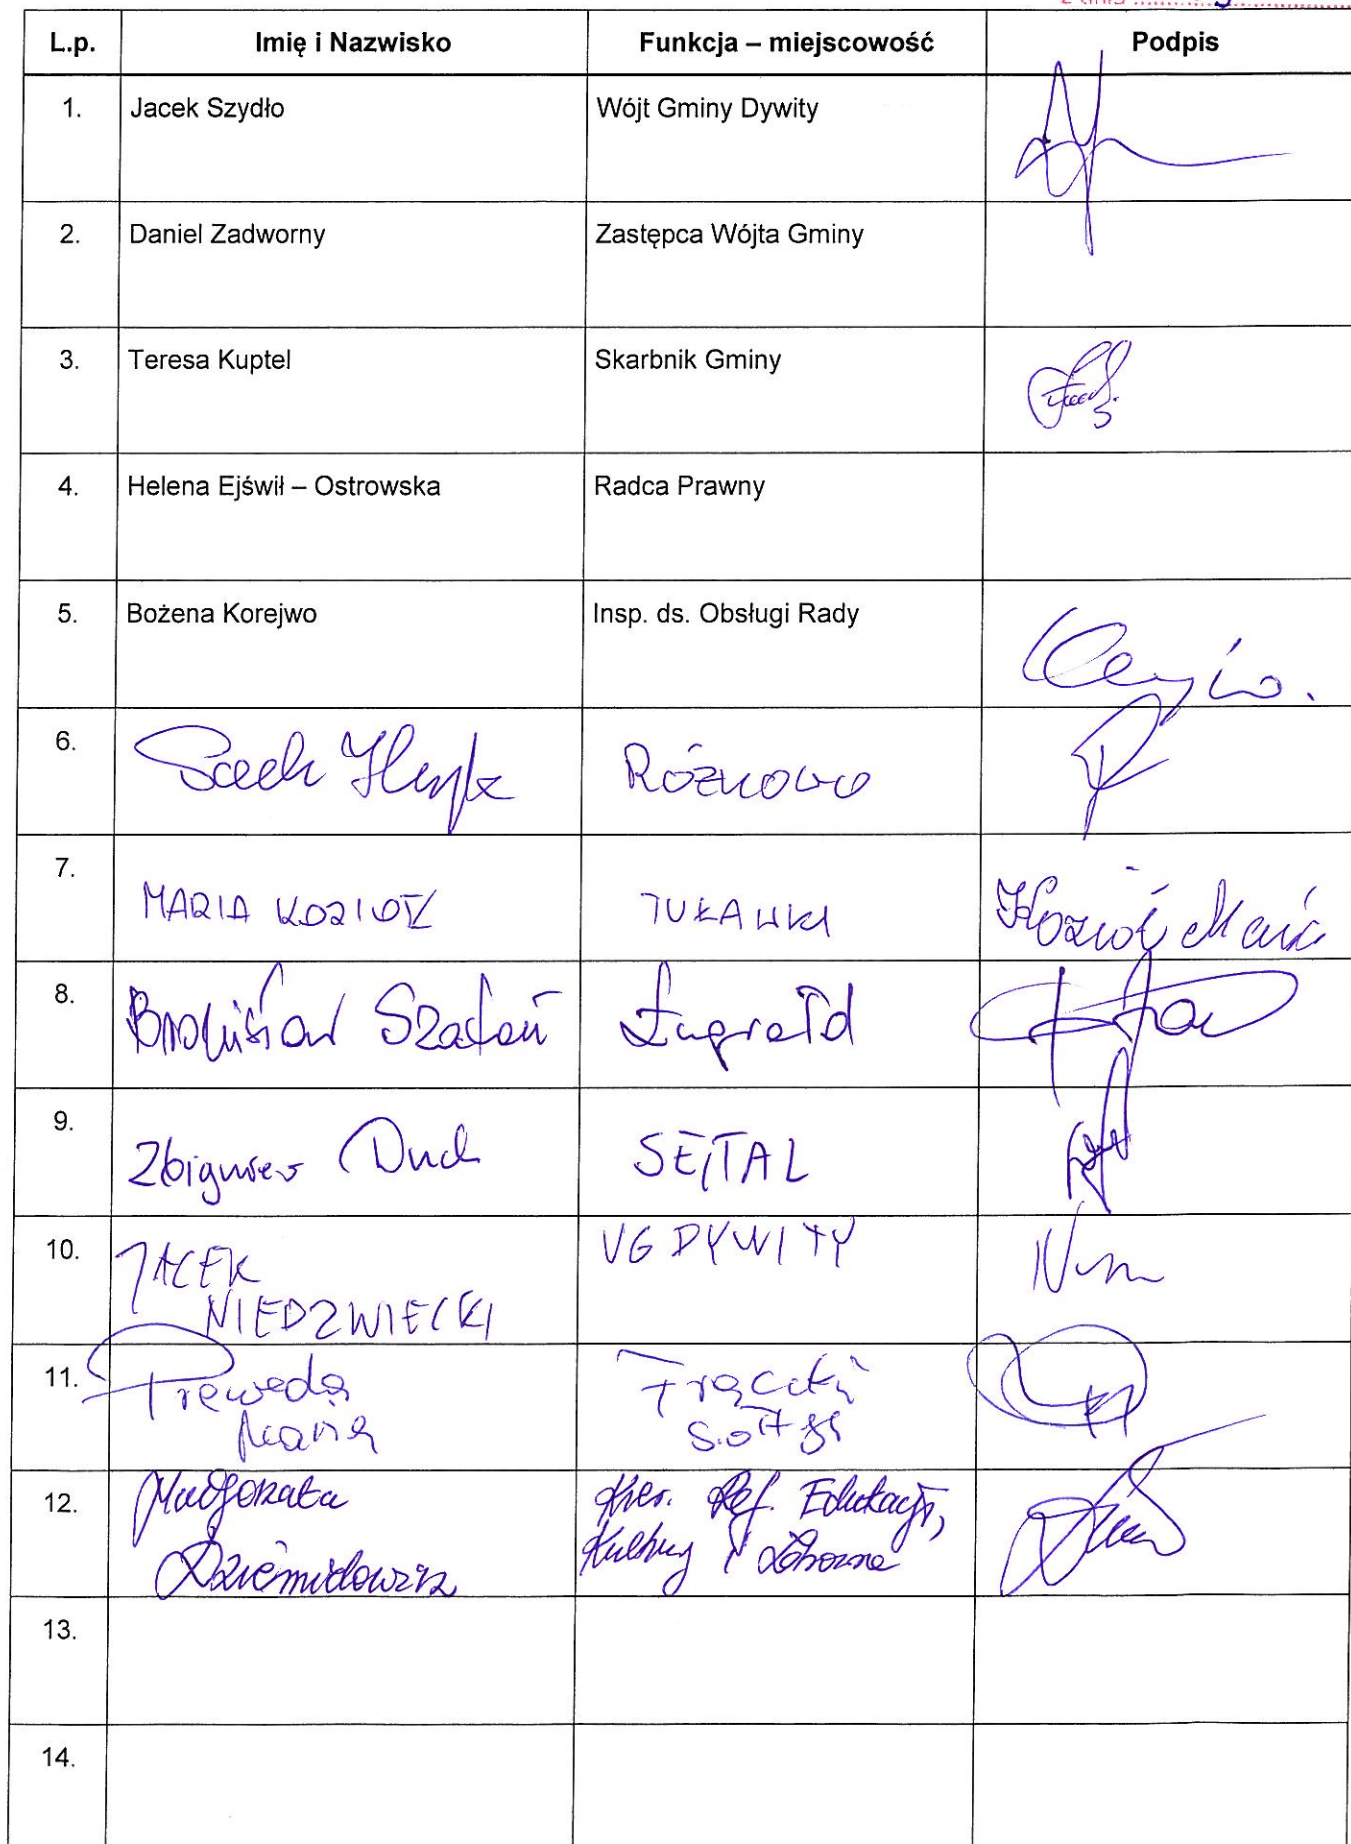 z dnia
L.p. Imię i Nazwisko Funkcja – miejscowość Podpis
1. Jacek Szydło Wójt Gminy Dywity
2. Daniel Zadworny Zastępca Wójta Gminy
3. Teresa Kuptel Skarbnik Gminy
4. Helena Ejświł – Ostrowska Radca Prawny
5. Bożena Korejwo Insp. ds. Obsługi Rady
6. Sach RÓŻNOWO
7. MARIA KOZIOŁ TUŁAWKI Kozioł Maria
8. Bronisław Szatan Ługwałd
9. Zbigniew Duch SĘTAL
10. JACEK UG DYWITY
NIEDZWIECKI
11. Frączki
Maria sołtys
12. Małgorzata Kier. Ref. Edukacji,
Dziemidowicz Kultury i Zdrowia
13.
14.